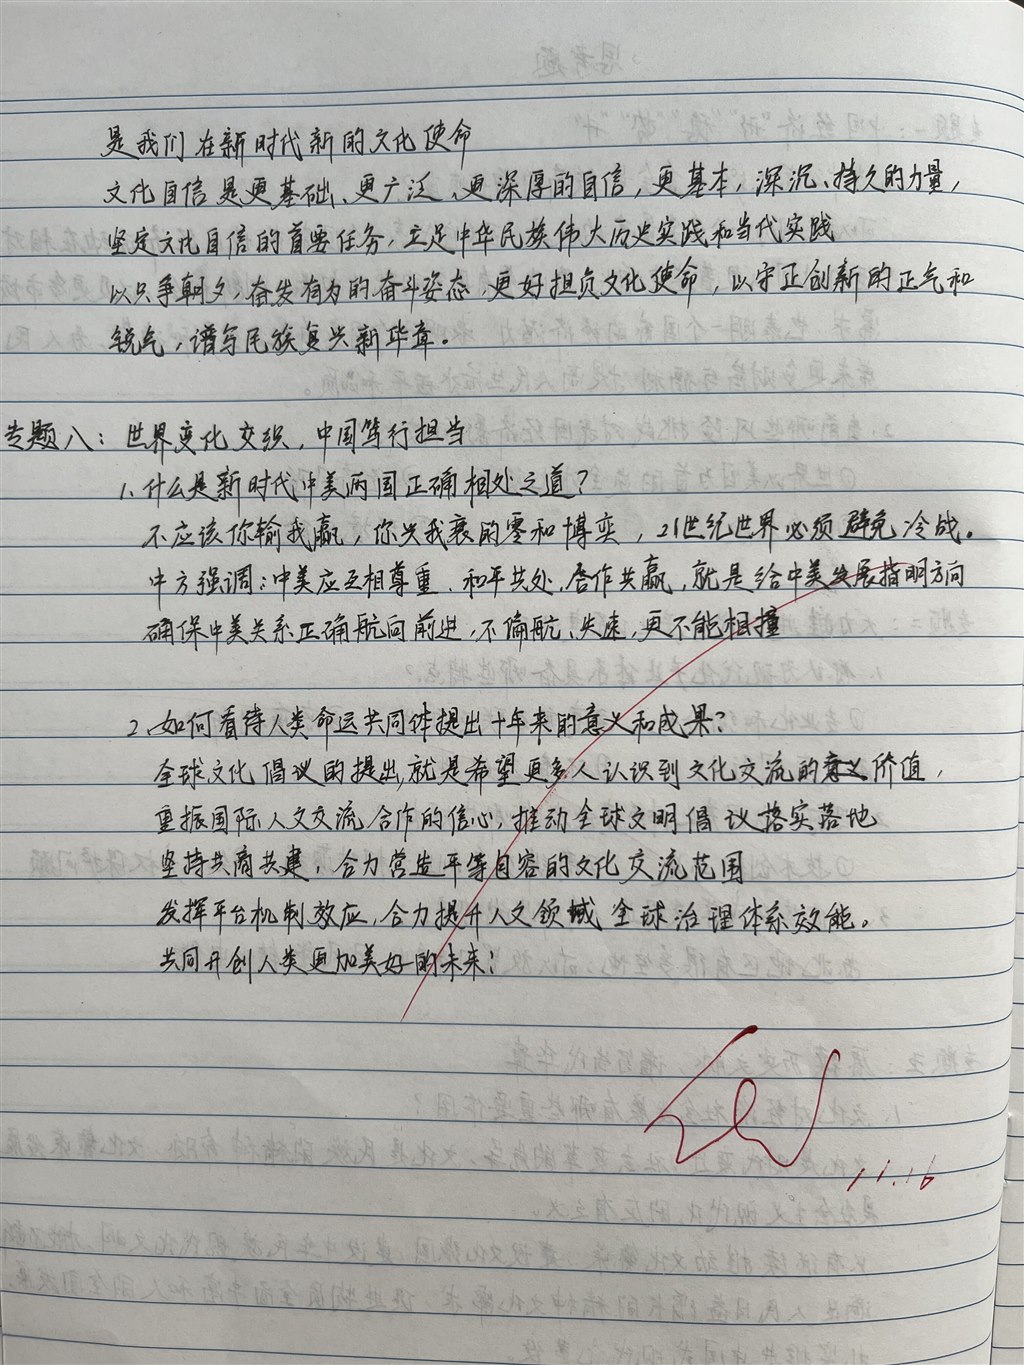 是我们在新时代新的文化使命
文化自信是更基础、更广泛、更深厚的自信，更基本，深沉、持久的力量，
坚定文化自信的首要任务，立足中华民族伟大历史实践和当代实践
以只争朝夕，奋发有为的奋斗姿态，更好担负文化使命，以守正创新的正气和
锐气，谱写民族复兴新华章。
专题八：世界变化交织，中国笃行担当
1、什么是新时代中美两国正确相处之道？
不应该你输我赢，你兴我衰的零和博弈，21世纪世界必须避免冷战。
中方强调：中美应互相尊重、和平共处、合作共赢，就是给中美发展指明方向
确保中美关系正确航向前进，不偏航、失速，更不能相撞
2、如何看待人类命运共同体提出十年来的意义和成果？
全球文化倡议的提出，就是希望更多人认识到文化交流的意义价值，
重振国际人文交流合作的信心，推动全球文明倡议落实落地
坚持共商共建，合力营造平等包容的文化交流范围
发挥平台机制效应，合力提升人文领域全球治理体系效能。
共同开创人类更加美好的未来！
11.16